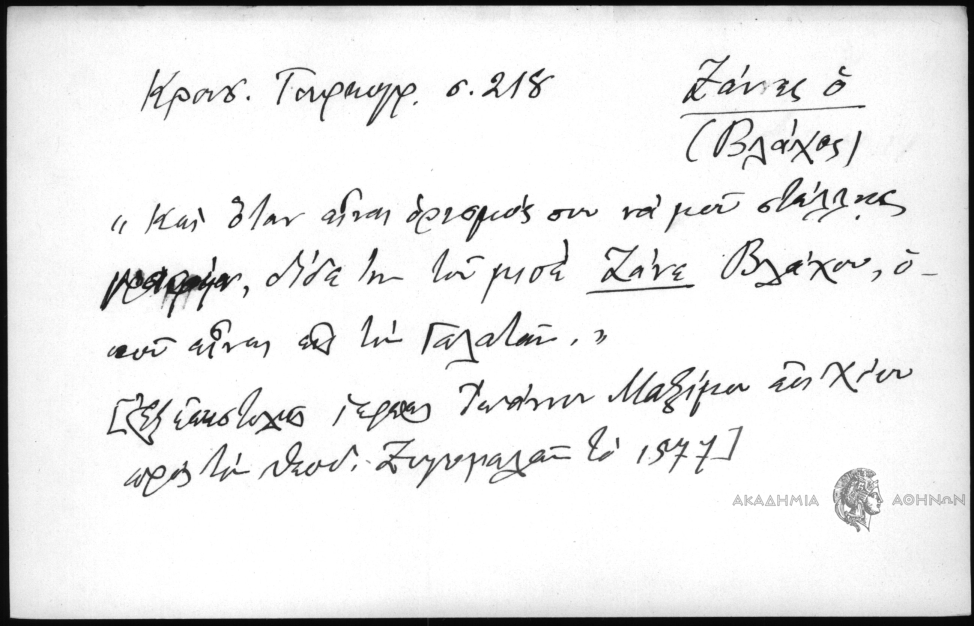 Κρουσ. Τουρκογρ. σ. 218
Ζάνες ὁ
(Βλάχος)
„ Καὶ ὅταν εἶναι ὁρισμός σου νὰ μοῦ στέλλῃς
γραφήν, δίδε την τοῦ μισὲ Ζάνε Βλάχου, ὁ-
ποῦ εἶναι εἰς τὸν Γαλατᾶν. "
[Ἐξ ἐπιστολῆς ἱερέως Ἰωάννου Μαξίμου ἐκ Χίου
πρὸς τὸν Θεοδ. Ζυγομαλᾶν τὸ 1577]
ΑΚΑΔΗΜΙΑ ΑΘΗΝΩΝ